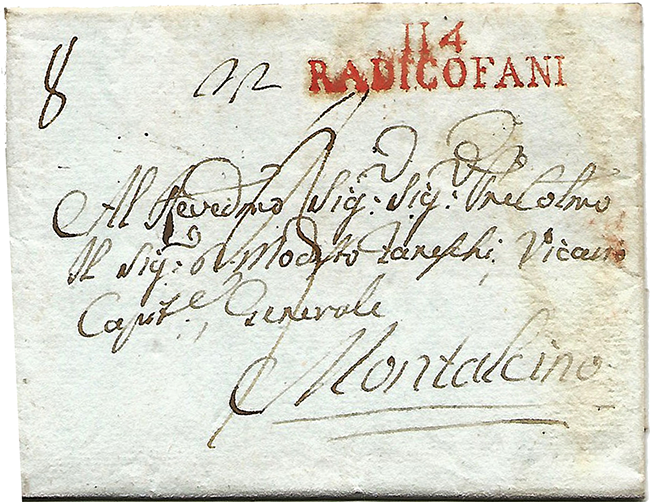 8
114
RADICOFANI
Al Revedmo Sig: Sig: Pne Colmo
Il Sig: Modesto Vicario
Capit:e Generale
Montalcino